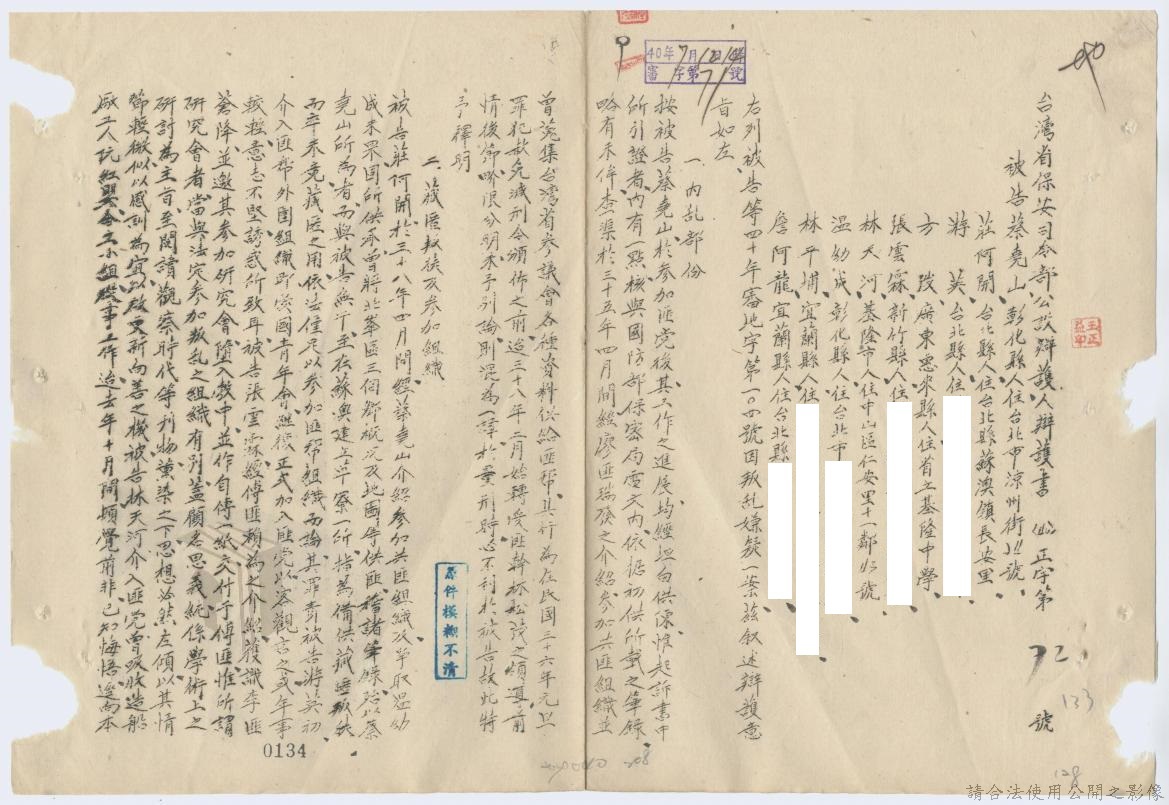 40年7月12日
審字第71號
台湾省保安司令部公設辯護人辯護書 (40)正字第72號
被告蔡堯山 彰化縣人住台北市涼州街11號
莊阿開 台北縣人住台北縣蘇澳鎮長安里
蔣英 台北縣人住
方 廣東惠來縣人住省立基隆中學
張雲霖 新竹縣人住
林天河 基隆市人住中山區仁安里十一鄰 號
温幼成 彰化縣人住台北市
林平埔 宜蘭縣人住
詹阿龍 宜蘭縣人住台北縣
右列被告等四十年審地字第一〇四號因叛乱嫌疑一案茲叙述辯護意
旨如左
一、內乱部份
按被告蔡堯山於參加匪党後其工作之進展均經坦白供陳惟起訴書中
所引證者內有一點核與國防部保密局電文內依據初供所載之筆錄
略有未侔查渠於三十五年四月間經廖匪瑞發之介紹參加共匪組織並
曾蒐集台湾省參議會各種資料供給匪帮其行為在民國三十六年元旦
罪犯赦免減刑令頒佈之前迨三十八年二月始轉受匪幹林松茂之領導前
情後節畛限分明未予引論則混為一談於量刑時必不利於被告故此特
予釋明
二、藏匿叛徒及參加組織
被告莊阿開於三十八年四月間經蔡堯山介紹參加共匪組織及早取温幼
成未果固所供承曾將北峯區三個鄉概況及地圖等供匪稽諸筆錄殆以蔡
堯山所為者而與被告無干至在蘇澳建立草寮一所指為備供藏匿叛徒
而卒未竟藏匪之用依法僅足以參加匪帮組織而論其罪責被告蔣英初
介入匪帮外圍組織 愛國青年會繼後正式加入匪党以客觀言之或年事
較輕意志不堅誘惑所致耳被告張雲霖經傅匪賴為之介紹獲識李匪
蒼降並邀其參加研究會墮入彀中並作自傳一紙交付于傅匪惟所謂
研究會者當與法定參加叛乱之組織有別蓋顧名思義純係學術上之
研討為主旨至閱讀觀察時代等刊物薰染之下思想必然左傾以其情
節輕微似以感訓為宜以啟更新向善之機被告林天河介入匪党曾吸收造船
廠工人阮紅嬰 立小組從事工作迨去年十月間頓覺前非已知悔悟遂向本
原件模糊不清
王正益印
0134
133
請合法使用公開之影像